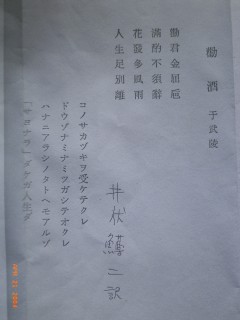 勧酒 于武陵
勧君金屈巵
満酌不須辞
花發多風雨
人生足別離
コノサカヅキヲ受ケテクレ
ドウゾナミナミツガシテオクレ
ハナニアラシノタトヘモアルゾ
「サヨナラ」ダケガ人生ダ
井伏鱒二訳